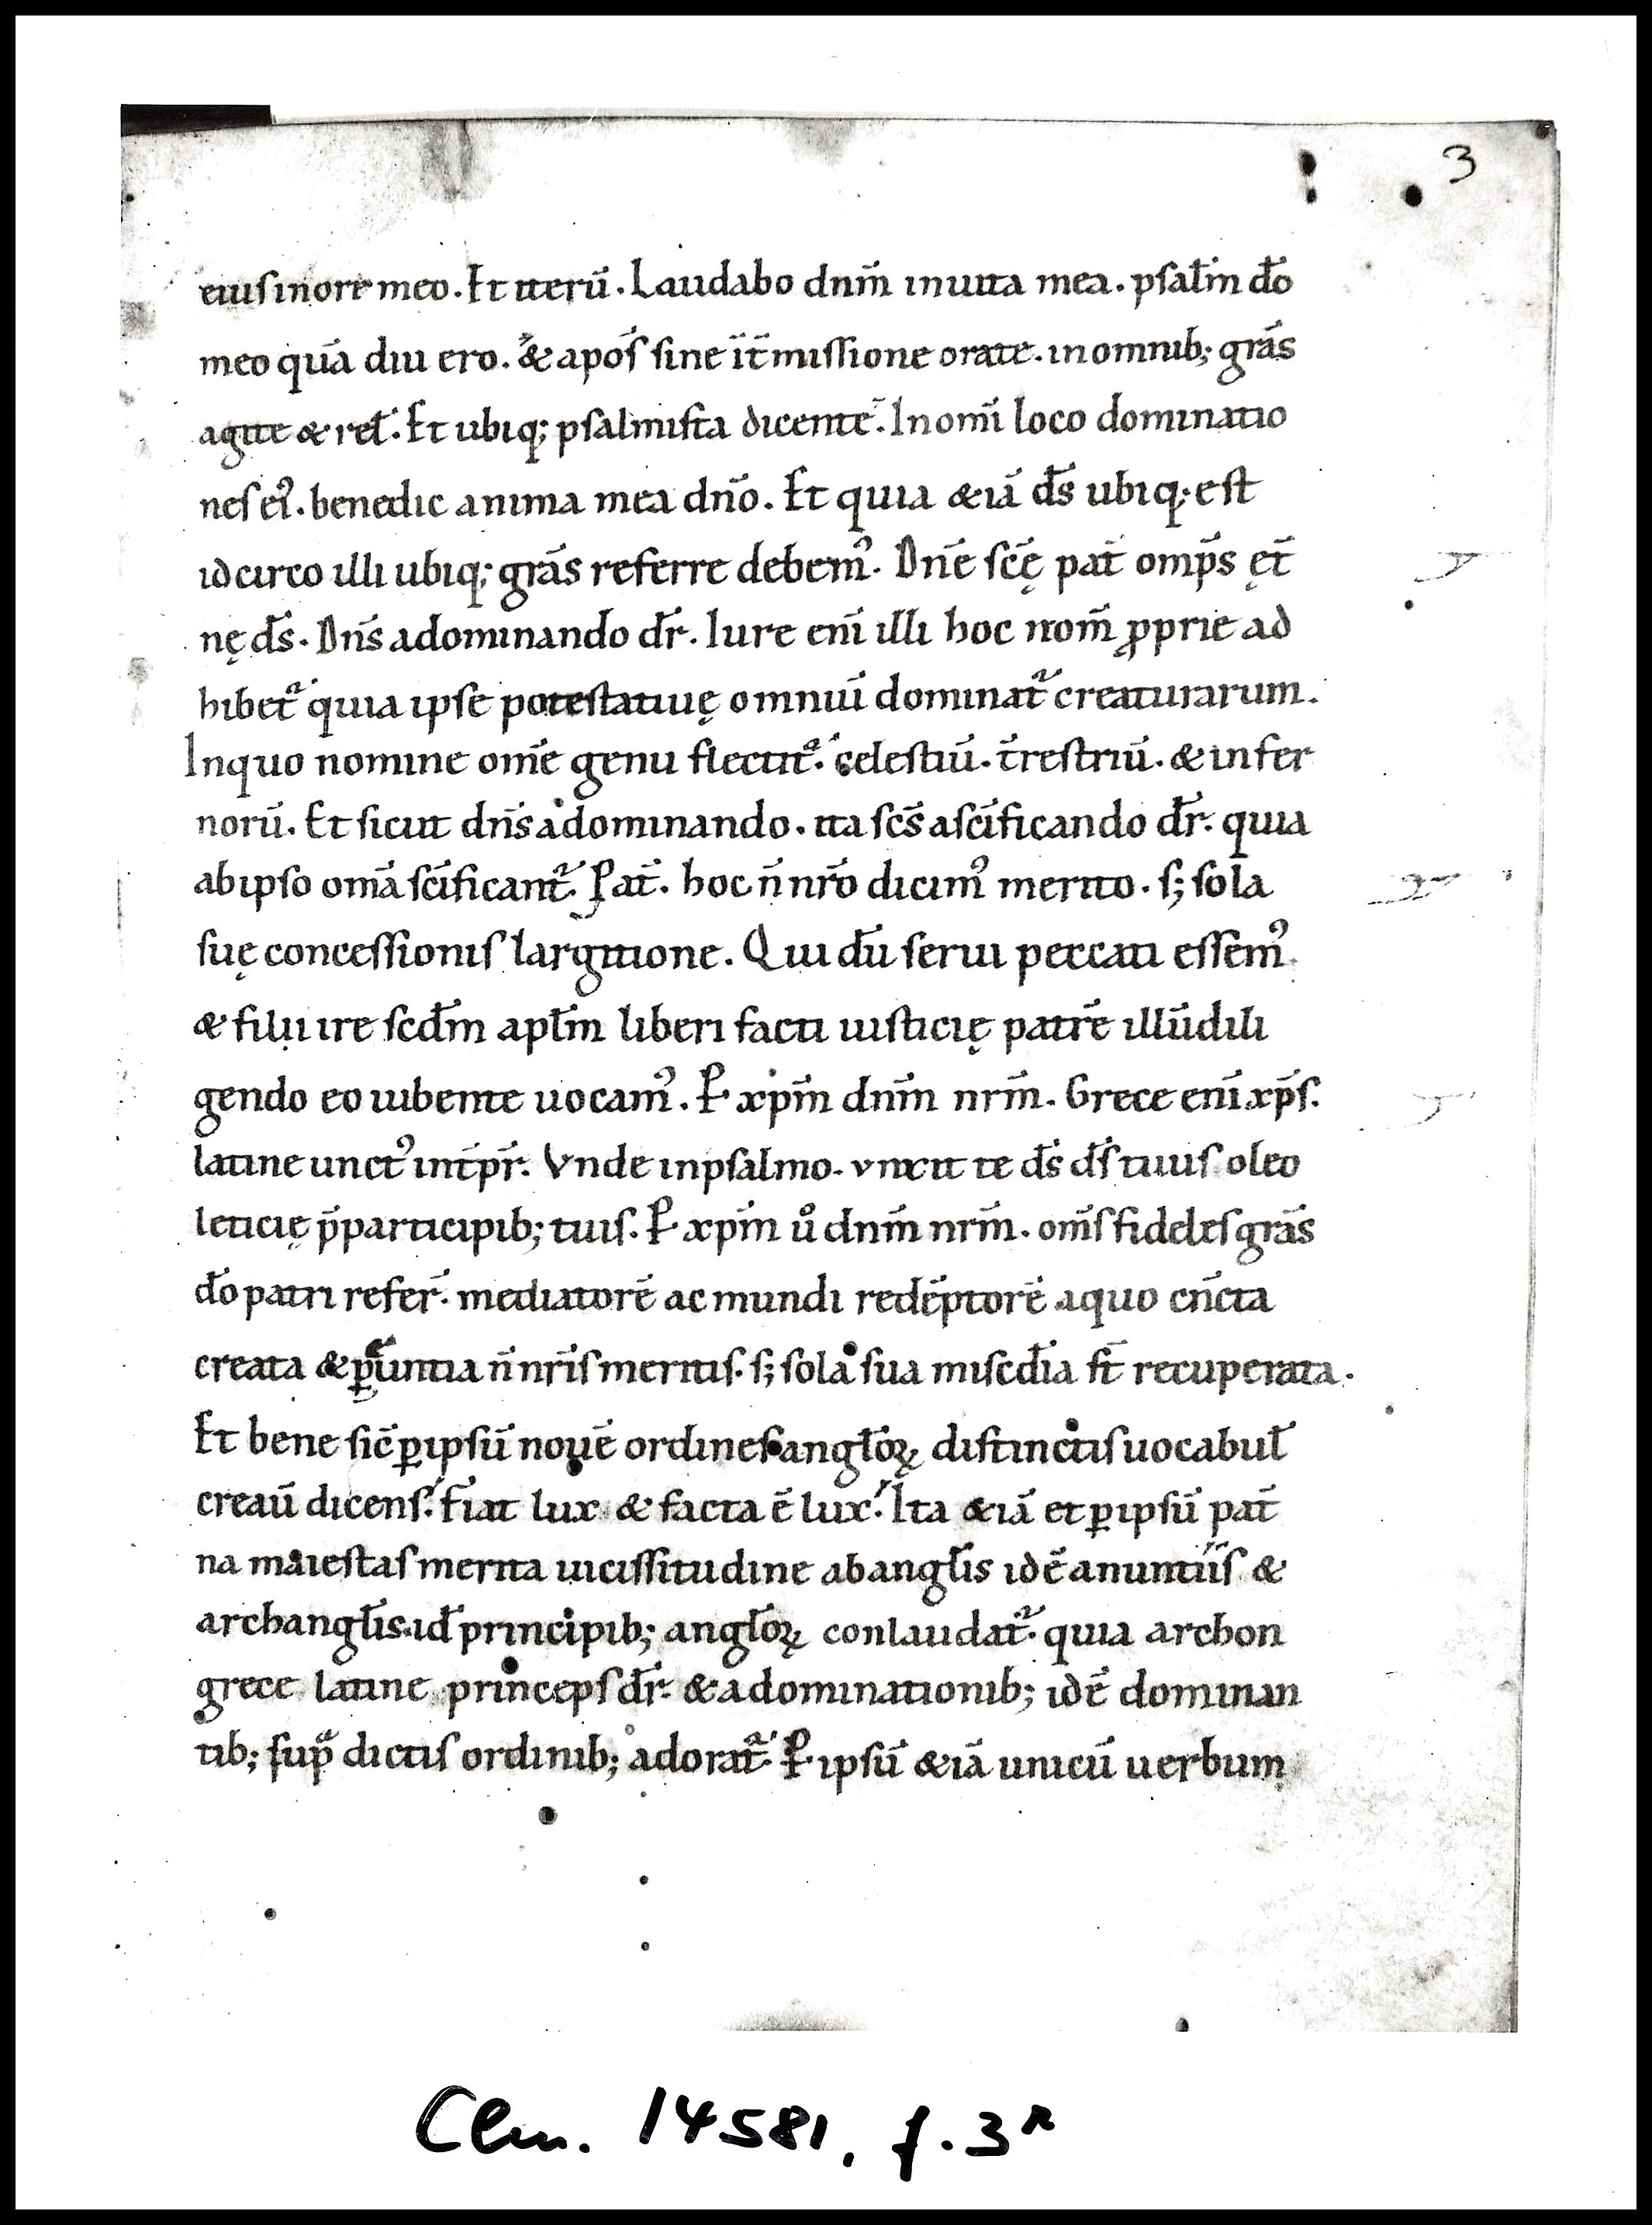 3
eiuſ in ore meo. Et iterū. Laudabo dnm̄ in uita mea. pſal̄m dō
meo quā diu ero. & apoſ̄ ſine īt̄miſſione orate. in omnib; grās
agite & rel̄. Et ubiq; pſalmiſta dicente. In om̄i loco dominatio
neſ ei᾽. benedic anima mea dnō. Et quia &iā dſ̄ ubiq; eſt
idcirco illi ubiq; grās referre debem᾽. Dnē ſcę̄ pat̄ omp̄s ęt̄
nę dſ̄. Dnſ̄ a dominando dr̄. Iure eni̅ illi hoc nom̄ ꝓprie ad
hibet᷑ quia ipſe poteſtatiuę omniū dominat᷑ creaturarum.
In quo nomine om̄e genu flectit᷑. celeſtiū. t̄reſtriū. & infer
norū. Et ſicut dnſ̄ a dominando. ita ſcſ̄ a ſcīficando dr̄. quia
ab ipſo om̄a ſcīficant᷑. Pat̄. hoc n̄ nrō dicim᾽ merito. ſ; ſola
ſuę conceſſioniſ largitione. Qui dū ſerui peccati eſſem᾽
& filii ire ſcdm̄ apl̄m liberi facti iuſticię patrē illū dili
gendo eo iubente uocam᾽. P xpm̄ dnm̄ nrm̄. Grece eni̅ xpſ̄.
latine unct᾽ int̄pr̄. Vnde in pſalmo. vnxit te dſ̄ dſ̄ tuuſ oleo
leticię p̄ participib; tuiſ. P xpm̄ ů dnm̄ nrm̄. om̄ſ fideleſ grās
dō patri refer̄. mediatorē ac mundi redēptorē a quo cūcta
creata & ꝑeuntia n̄ nrīſ meritiſ. ſ; ſola ſua miſcdia ſt̄ recuperata.
Et bene ſic̄ ꝑ ipſū nouē ordineſ angl̄oꝝ diſtinctiſ uocabul̄
creaū dicenſ. fiat lux & facta ē lux. Ita &iā et ꝑ ipſū pat̄
na maieſtaſ merita uiciſſitudine ab angl̄is idē a nuntiiſ &
archangl̄is. id̄ principib; angl̄oꝝ conlaudat᷑. quia archon
grece latine princepſ dr̄. & a dominationib; idē dominan
tib; ſupᵃ dictiſ ordinib; adorat᷑. P ipſū &iā unicū uerbum
Clm. 14581, f. 3ʳ